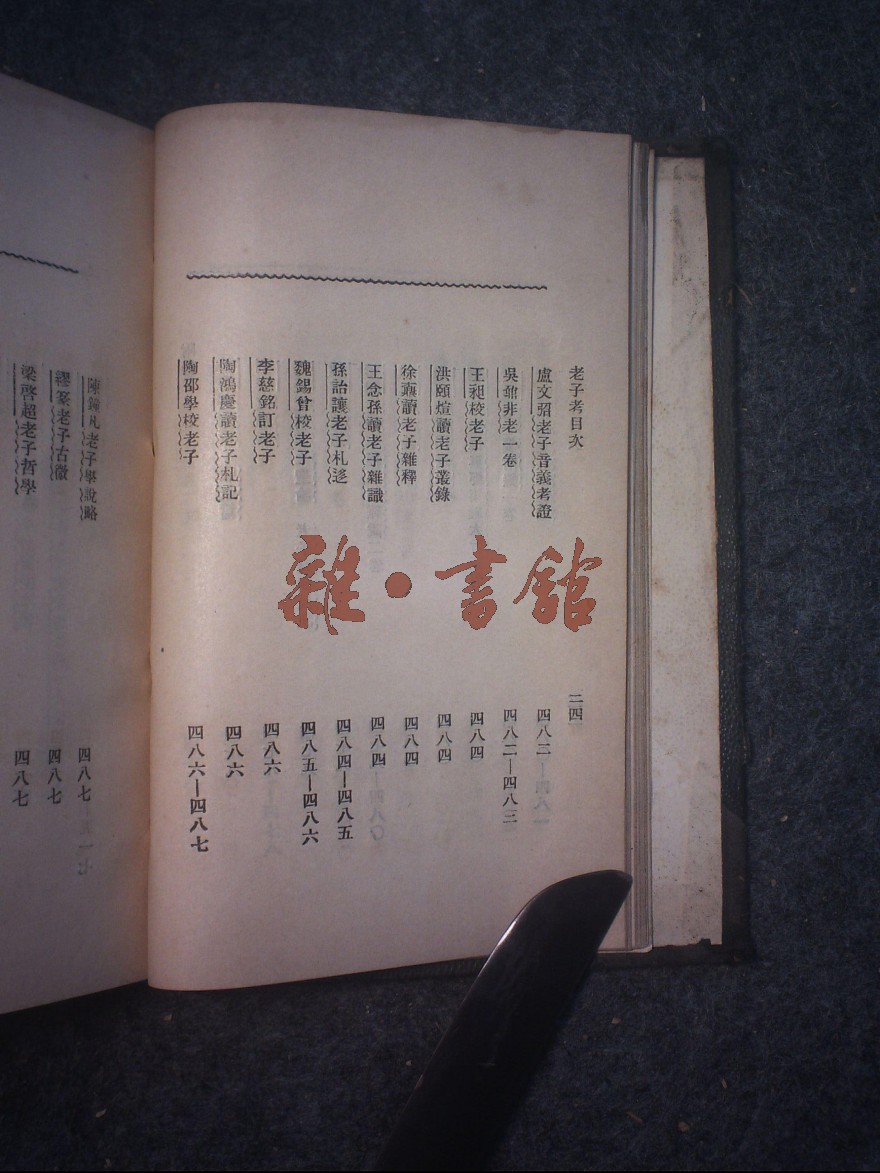 老子考目次 二四
盧文弨老子音義考證 四八二
吳鼐非老一卷 四八二—四八三
王昶校老子 四八四
洪頤煊讀老子叢錄 四八四
徐鼒讀老子雜釋 四八四
王念孫讀老子雜識 四八四
孫詒讓老子札迻 四八四—四八五
魏錫曾校老子 四八五—四八六
李慈銘訂老子 四八六
陶鴻慶讀老子札記 四八六
陶邵學校老子 四八六—四八七
陳鐘凡老子學說略 四八七
繆篆老子古微 四八七
梁啓超老子哲學 四八七
雜·書館